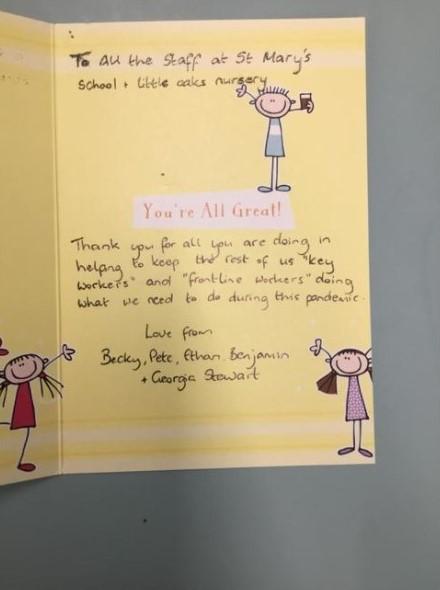 To All the Staff at St Mary's
School + little oaks nursery
You're All Great!
Thank you for all you are doing in
helping to keep the rest of us "key
workers" and "frontline workers" doing
what we need to do during this pandemic.
Love from
Becky, Pete, Ethan, Benjamin
+ Georgia Stewart